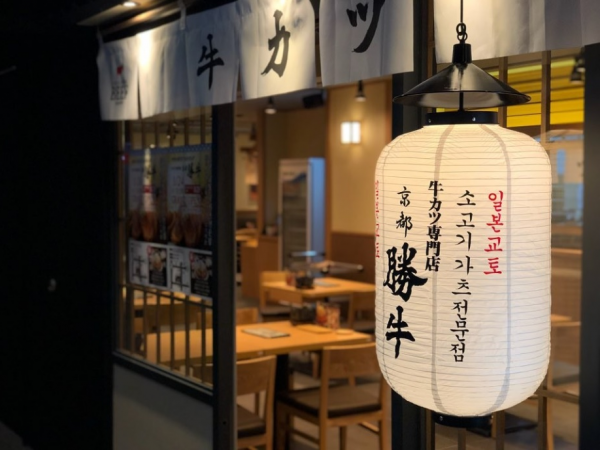 牛カツ
일본교토
소고기가츠전문점
牛カツ専門店
京都
勝牛